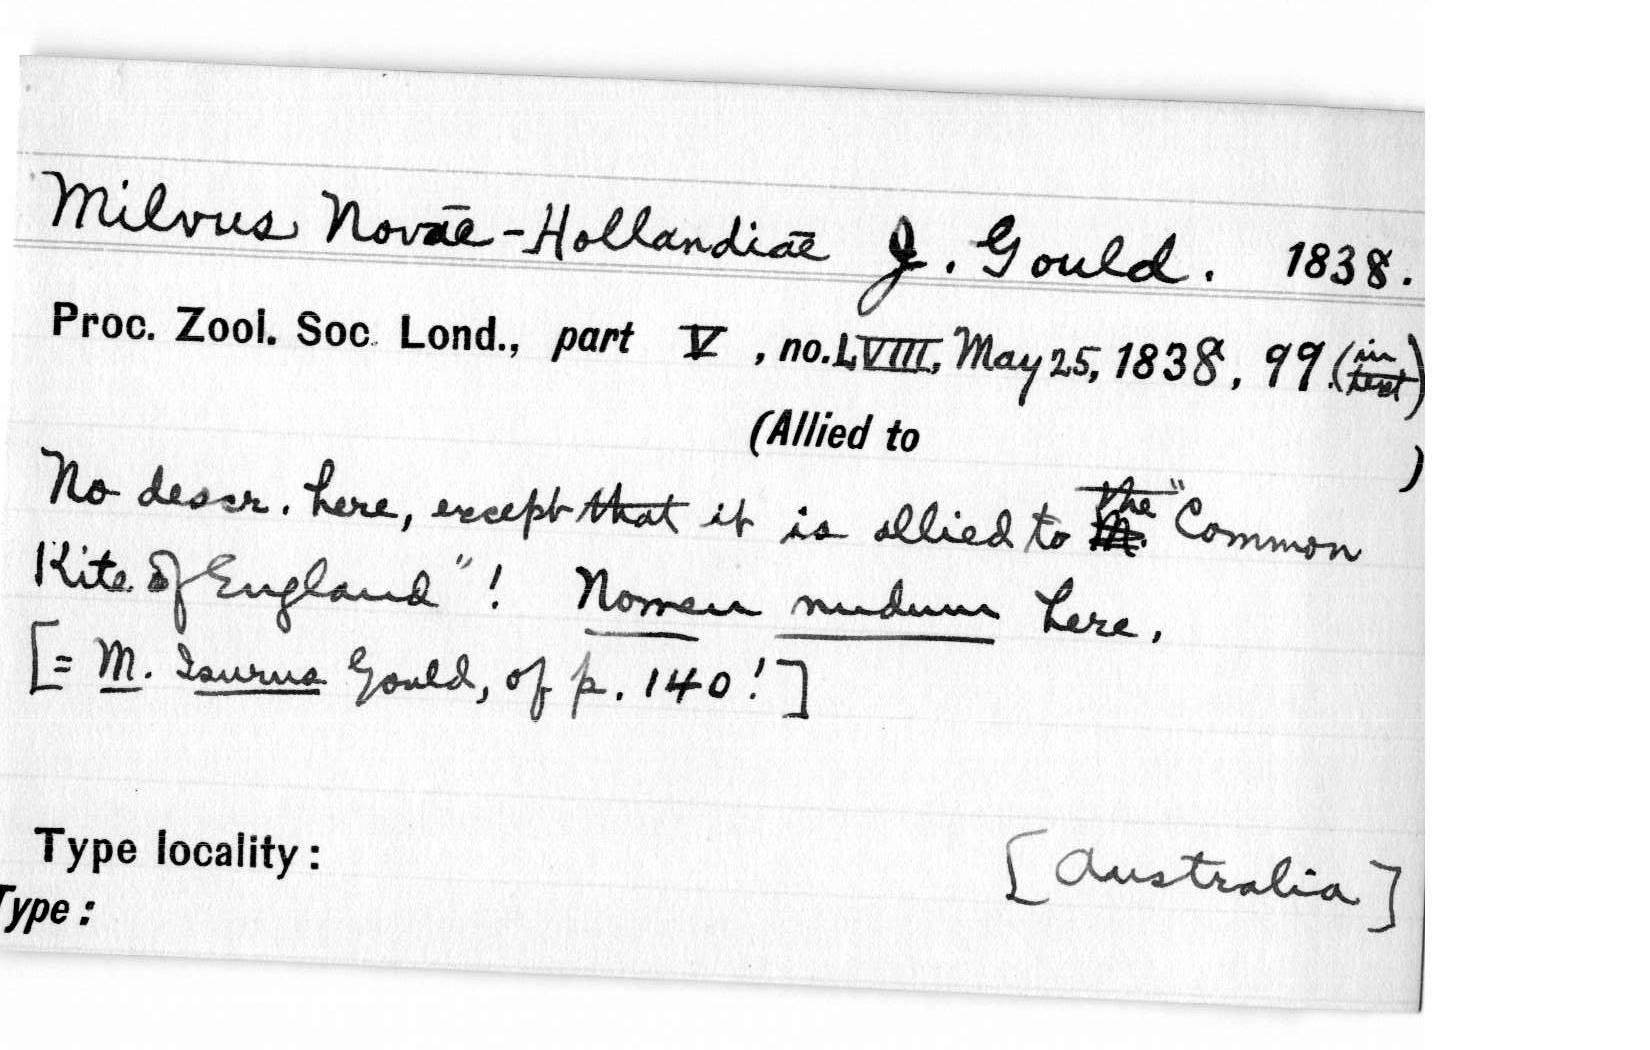 Milvus Novae-Hollandiae J. Gould. 1838.
Proc. Zool. Soc. Lond., part V, no. LVIII, May 25, 1838, 99. (in text)
(Allied to )
No descr. here, except that it is allied to the "Common
Kite of England"! Nomen nudum here.
[= M. Isurus Gould, of p. 140!]
Type locality: [Australia]
Type: